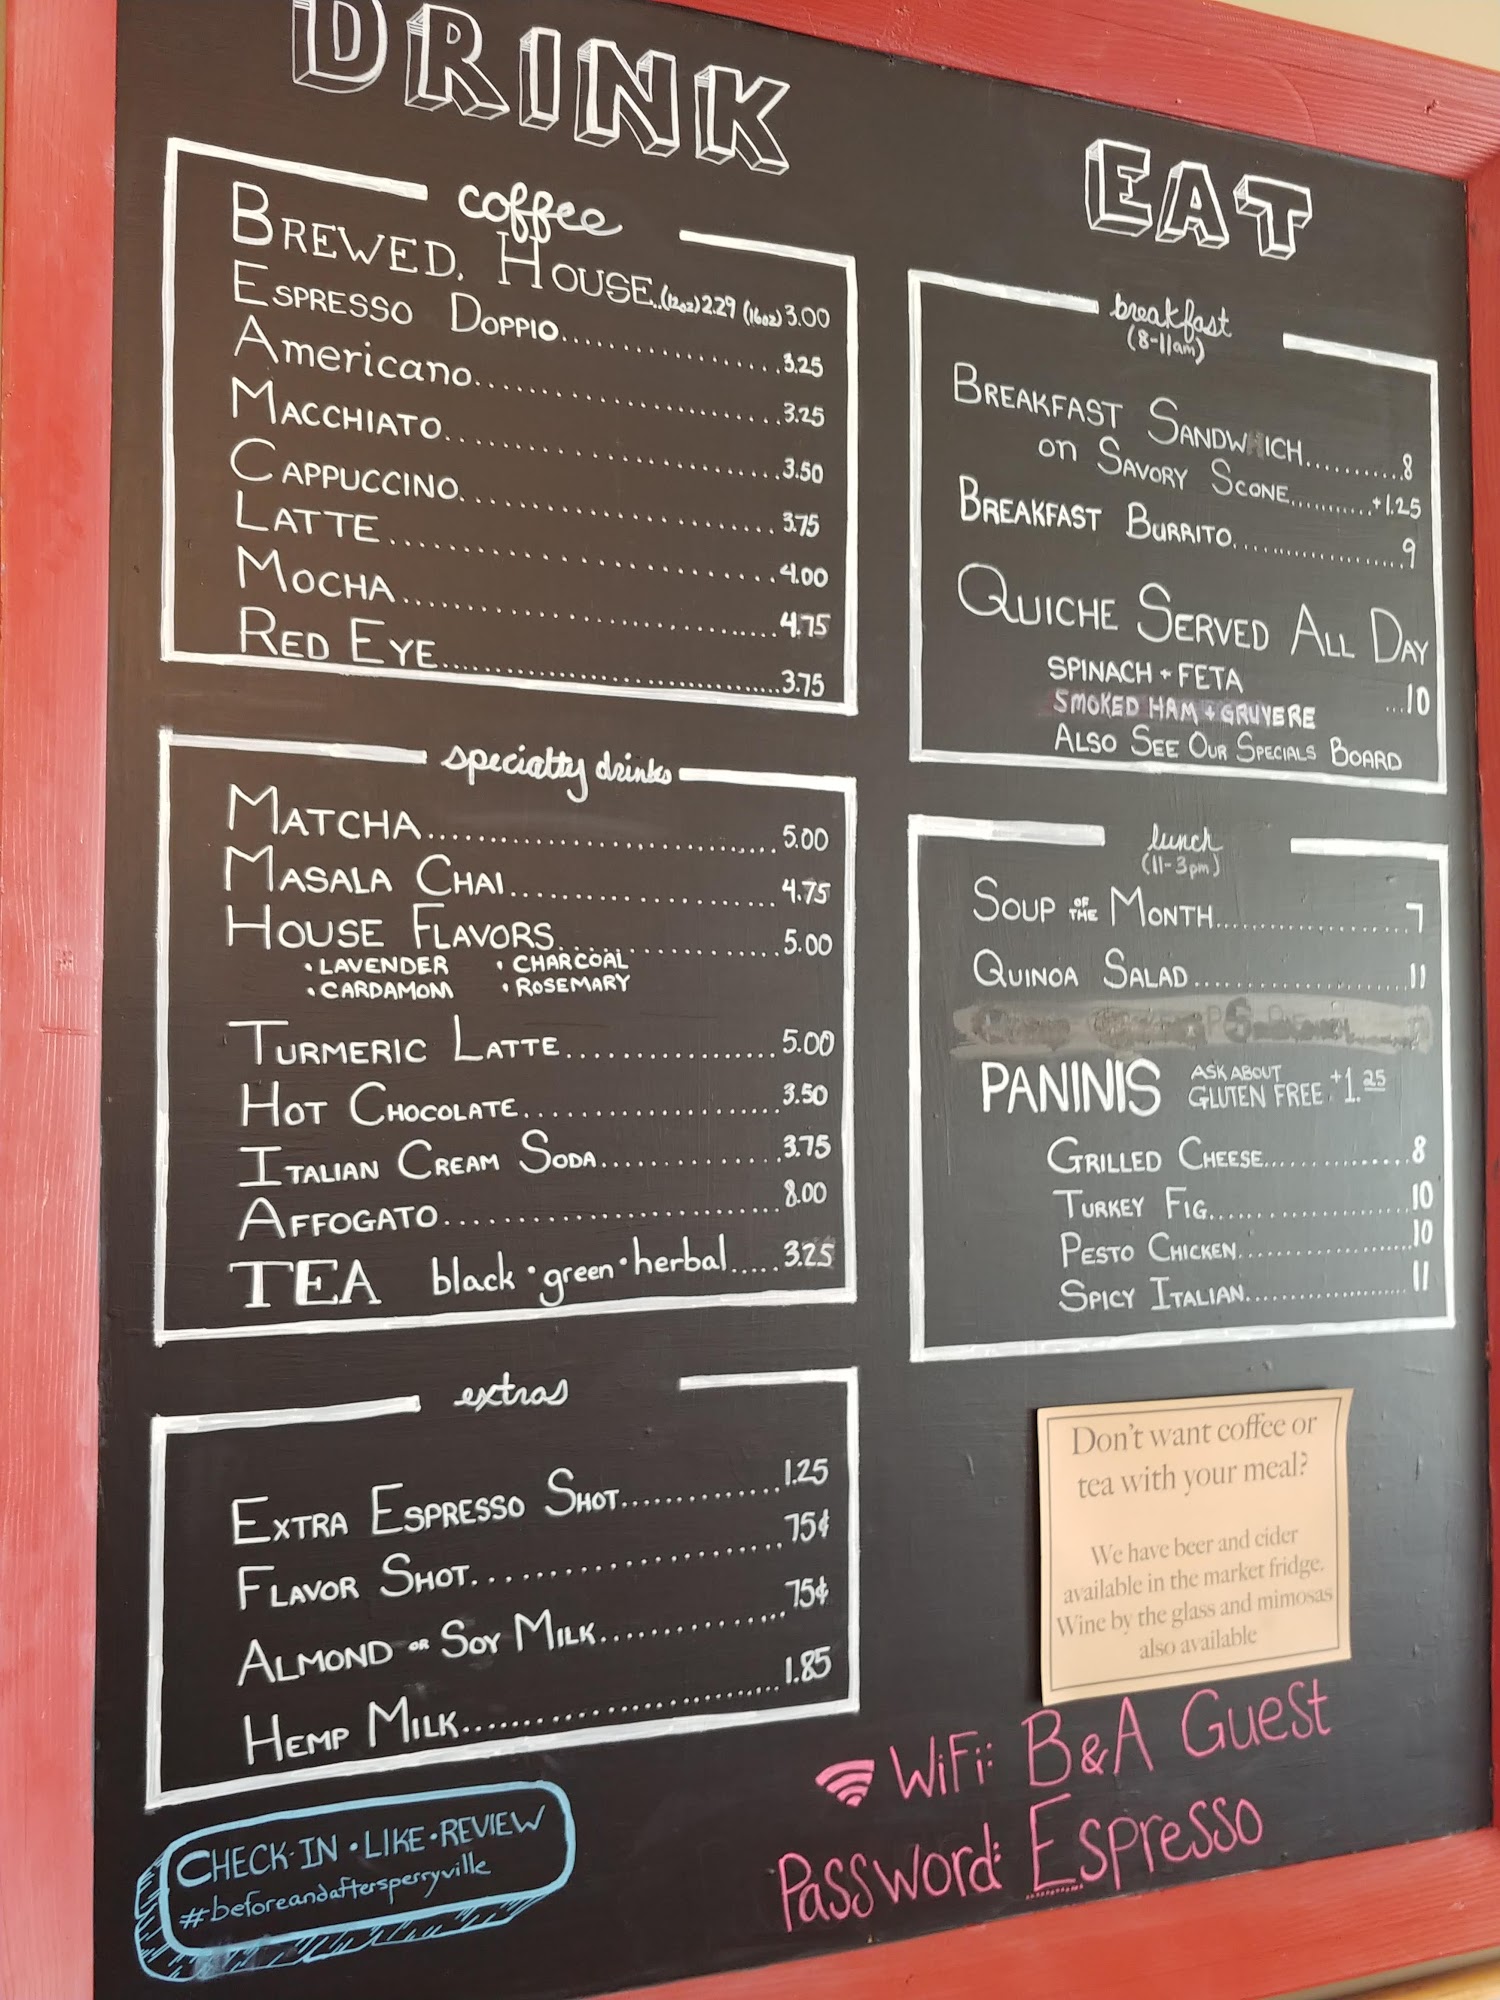 DRINK
coffee
BREWED, HOUSE..(12oz)2.29 (16oz)3.00
ESPRESSO DOPPIO..................3.25
Americano.........................3.25
MACCHIATO.........................3.50
CAPPUCCINO........................3.75
LATTE.............................4.00
MOCHA.............................4.75
RED EYE...........................3.75
specialty drinks
MATCHA............................5.00
MASALA CHAI.......................4.75
HOUSE FLAVORS.....................5.00
• LAVENDER • CHARCOAL
• CARDAMOM • ROSEMARY
TURMERIC LATTE..................5.00
HOT CHOCOLATE.....................3.50
ITALIAN CREAM SODA..............3.75
AFFOGATO..........................8.00
TEA black • green • herbal.....3.25
extras
EXTRA ESPRESSO SHOT.............1.25
FLAVOR SHOT.......................75¢
ALMOND OR SOY MILK...............75¢
HEMP MILK.........................1.85
CHECK-IN • LIKE • REVIEW
#beforeandaftersperryville
EAT
breakfast
(8-11am)
BREAKFAST SANDWICH...........8
on SAVORY SCONE...........+1.25
BREAKFAST BURRITO.................9
QUICHE SERVED ALL DAY
SPINACH + FETA
SMOKED HAM + GRUYERE ...10
ALSO SEE OUR SPECIALS BOARD
lunch
(11-3pm)
SOUP OF THE MONTH....................7
QUINOA SALAD......................11
PANINIS ASK ABOUT GLUTEN FREE +1.25
GRILLED CHEESE...............8
TURKEY FIG.....................10
PESTO CHICKEN..................10
SPICY ITALIAN....................11
Don't want coffee or
tea with your meal?
We have beer and cider
available in the market fridge.
Wine by the glass and mimosas
also available
WiFi: B&A Guest
Password: Espresso